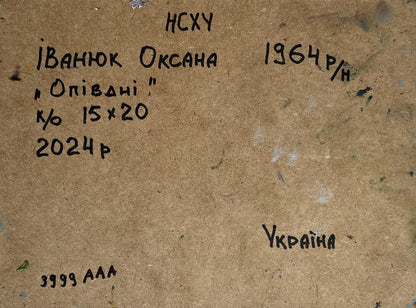 НСХУ
Іванюк Оксана 1964 р/н
„Опівдні"
к/о 15х20
2024 р
Україна
3999 ААА